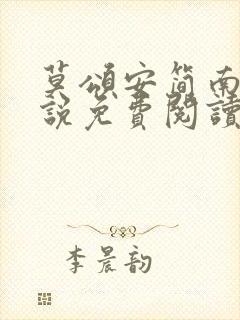 莫頌安簡南
說免費閱讀
李晨韵